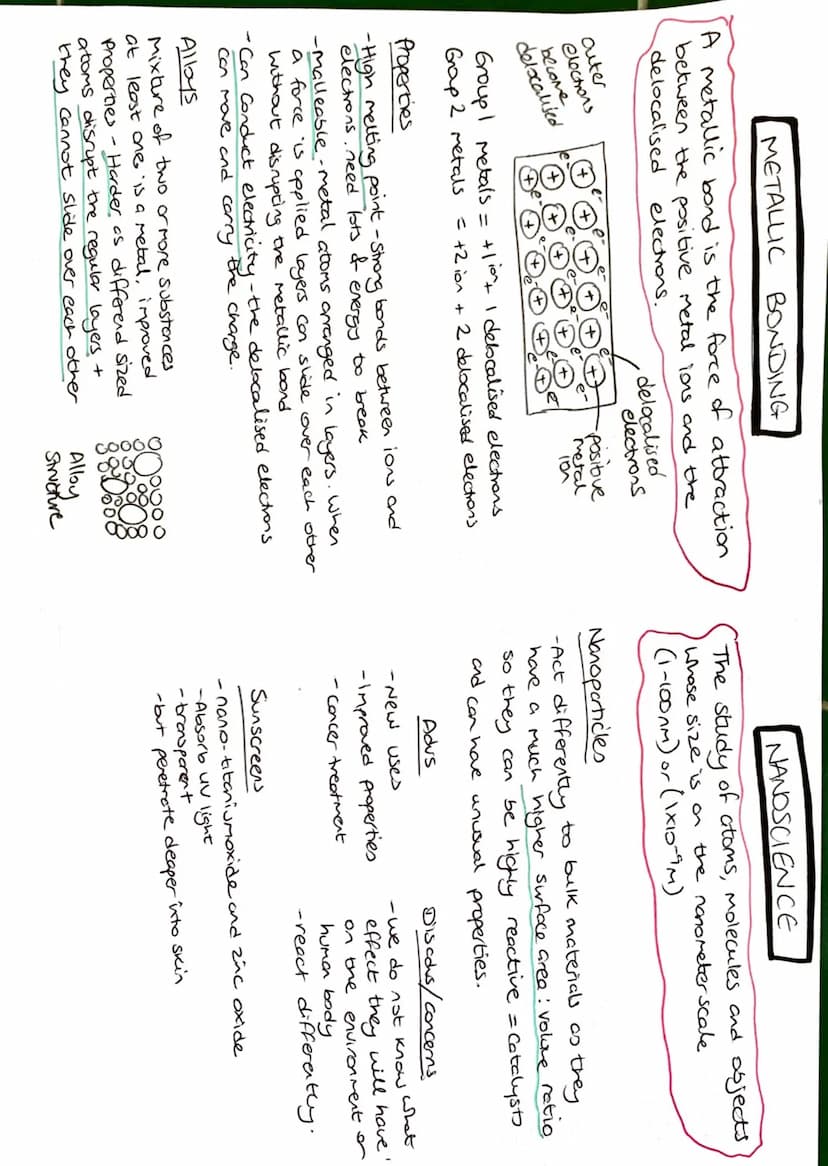 METALLIC BONDING
A metallic bond is the force of attraction
between the positive metal ions and the
delocalised electrons.
outer
electrons
become
delocalised
delocalised
electrons
positive
metal
ion
Group 1 metals = +1 ion + 1 delocalised electrons
Group 2 metals = +2 ion + 2 delocalised electrons
Properties
- High melting point - Strong bonds between ions and
electrons. need lots of energy to break
- malleable - metal atoms arranged in layers. When
a force is applied layers can slide over each other
without disrupting the metallic bond
- Can conduct electricity - the delocalised electrons
can move and carry the charge.
Alloys
Mixture of two or more substances
at least one is a metal. improved
properties - Harder as different sized
atoms disrupt the regular layers +
they cannot slide over each other
Alloy
Structure
NANOSCIENCE
The study of atoms, molecules and objects
whose size is on the nanometer scale
(1-100nM) or (1x10⁻⁹M)
Nanoparticles
- Act differently to bulk materials as they
have a much higher surface area : volume ratio
so they can be highly reactive = catalysts
and can have unusual properties.
Advs
- New uses
- Improved properties
- cancer treatment
Disadvs/concerns
- we do not know what
effect they will have
on the environment or
human body
- react differently.
Sunscreens
- nano-titanium oxide and zinc oxide
- Absorb UV light
- transparent
- but penetrate deeper into skin